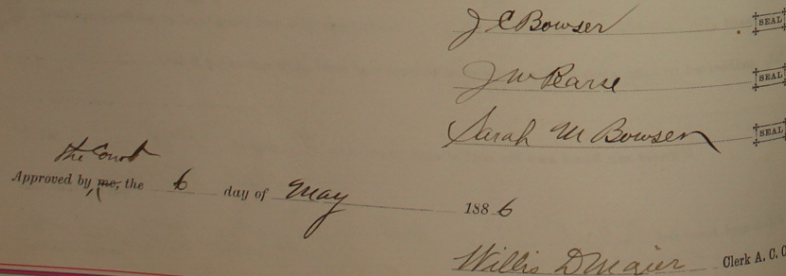 J C Bowser SEAL
J W Pearse SEAL
Sarah M Bowser SEAL
the Court
Approved by me, the 6 day of May 1886
Willis D Maier Clerk A. C. C